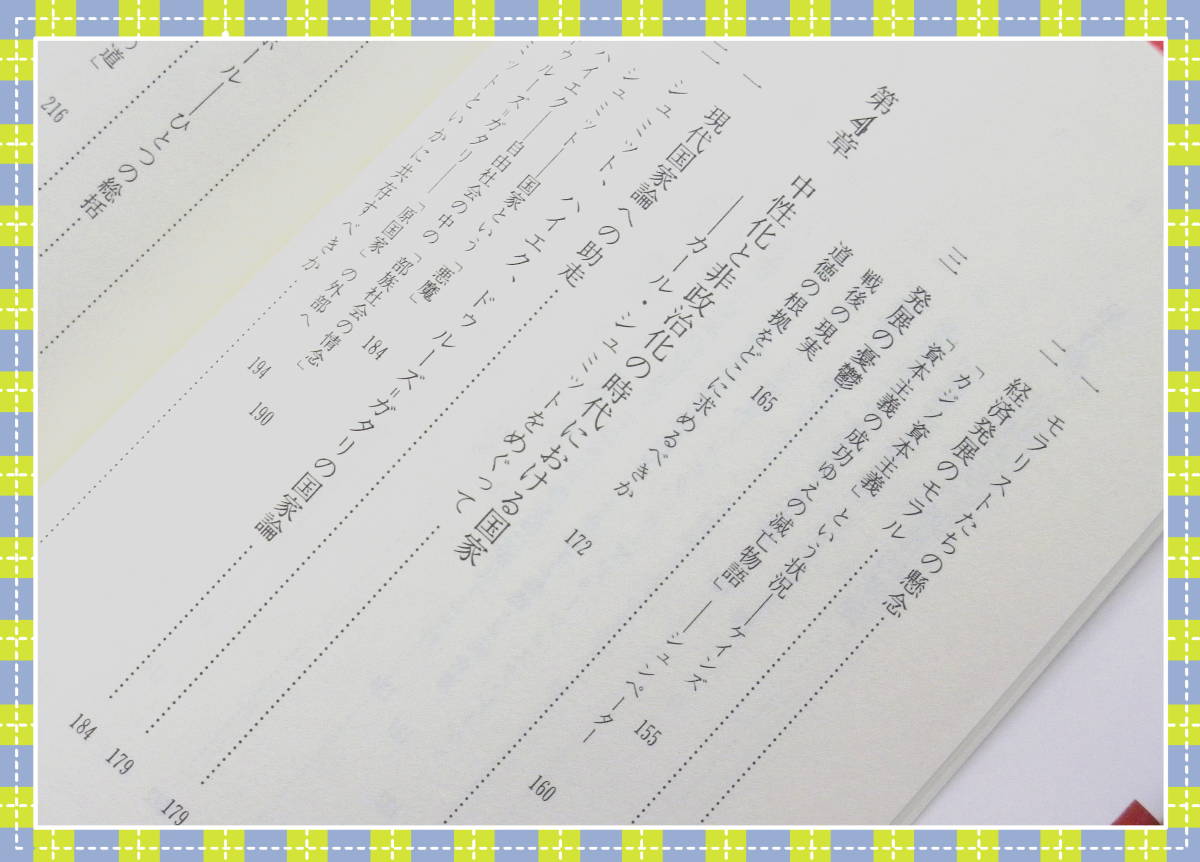 一　モラリストたちの懸念
二　経済発展のモラル
「カジノ資本主義」という状況――ケインズ 155
「資本主義の成功ゆえの滅亡物語」――シュンペーター 160
三　発展の憂鬱
戦後の現実 165
道徳の根拠をどこに求めるべきか 172
第4章　中性化と非政治化の時代における国家
――カール・シュミットをめぐって 179
一　現代国家論への助走 179
二　シュミット、ハイエク、ドゥルーズ=ガタリの国家論 184
シュミット――国家という「悪魔」 184
ハイエク――自由社会の中の「部族社会の情念」 190
ドゥルーズ=ガタリ――「原国家」の外部へ 194
ミットといかに共有すべきか
ボール――ひとつの総括
道」 216